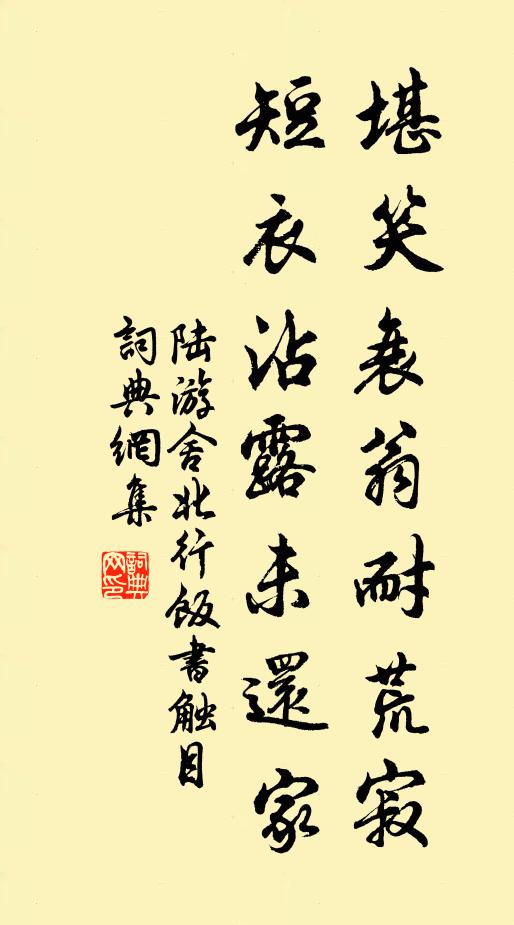 堪笑衰翁耐荒寂
短衣沾露未還家
陆游舍北行飯書触目
詞典網集
詞典網印